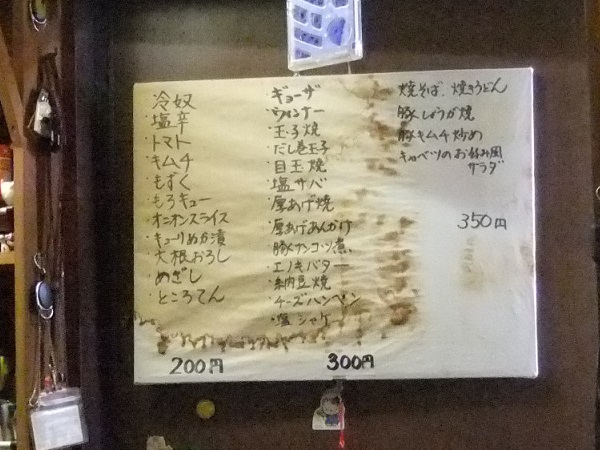 冷奴
塩辛
トマト
キムチ
もずく
もろキュー
オニオンスライス
キューリぬか漬
大根おろし
めざし
ところてん
200円
ギョーザ
ウィンナー
玉子焼
だし巻玉子
目玉焼
塩サバ
厚あげ焼
厚あげあんかけ
豚ナンコツ煮
エノキバター
納豆焼
チーズハンペン
塩シャケ
300円
焼そば、焼きうどん
豚しょうが焼
豚キムチ炒め
キャベツのお好み風
サラダ
350円